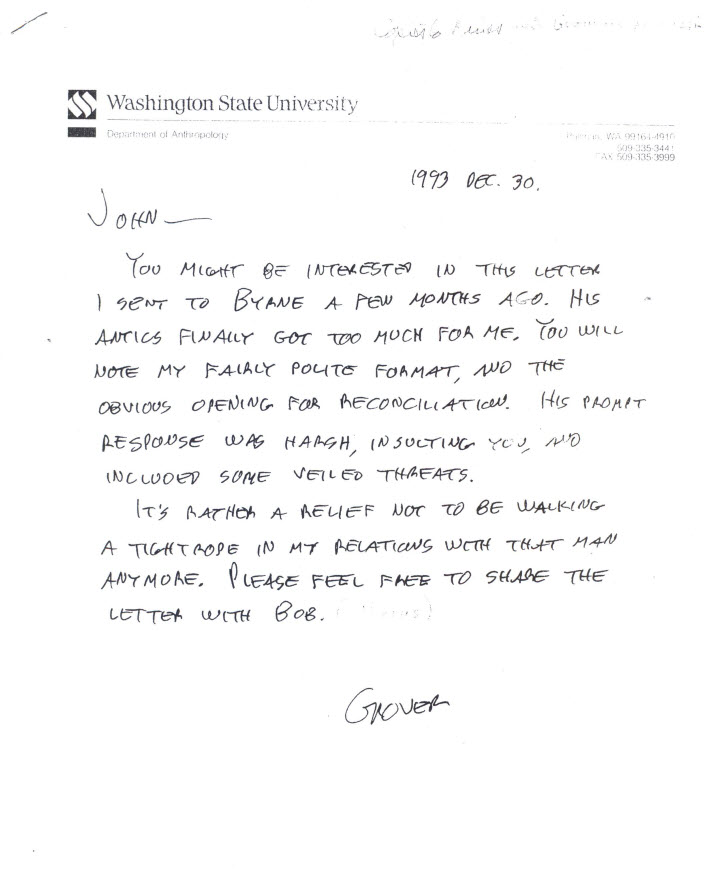 Washington State University
Department of Anthropology
Pullman, WA 99164-4910
509-335-3441
FAX 509-335-3999
1993 DEC. 30.
JOHN —
YOU MIGHT BE INTERESTED IN THIS LETTER
I SENT TO BYRNE A FEW MONTHS AGO. HIS
ANTICS FINALLY GOT TOO MUCH FOR ME. YOU WILL
NOTE MY FAIRLY POLITE FORMAT, AND THE
OBVIOUS OPENING FOR RECONCILIATION. HIS PROMPT
RESPONSE WAS HARSH, INSULTING YOU, AND
INCLUDED SOME VEILED THREATS.
IT'S RATHER A RELIEF NOT TO BE WALKING
A TIGHTROPE IN MY RELATIONS WITH THAT MAN
ANYMORE. PLEASE FEEL FREE TO SHARE THE
LETTER WITH BOB.
GROVER